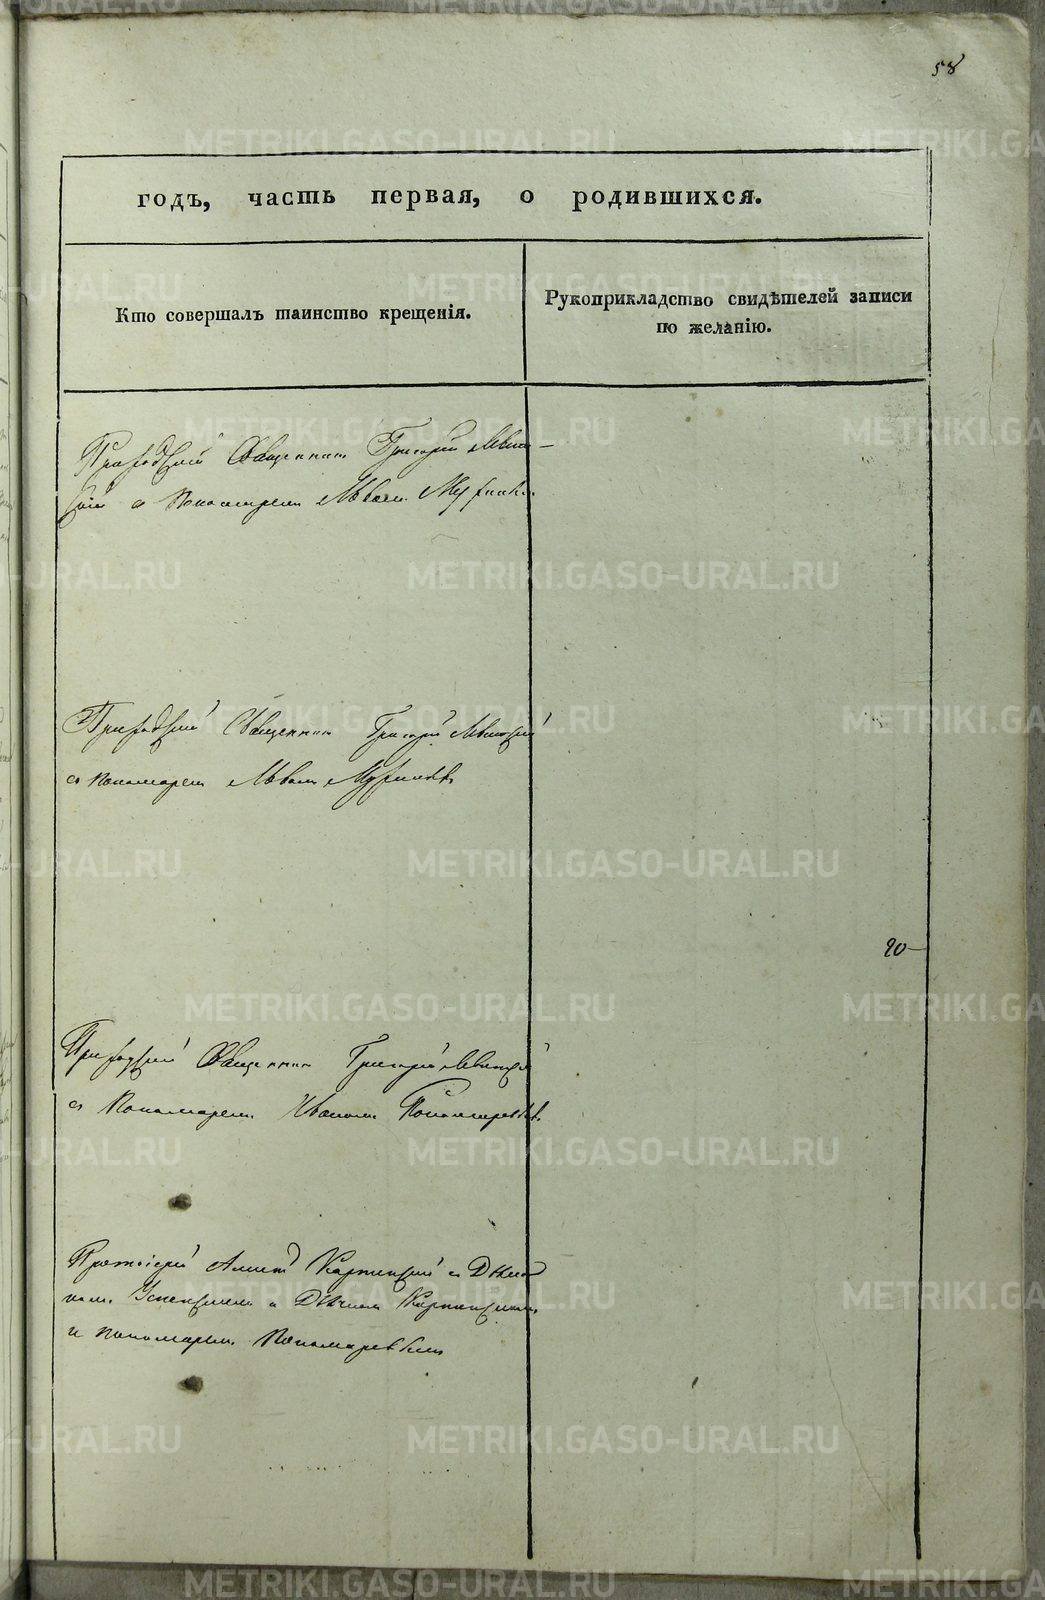 58
годъ, часть первая, о родившихся.
Кто совершалъ таинство крещенія.
Рукоприкладство свидѣтелей записи
по желанію.
Приходскій Священник Григорій
с Пономарем Львом
Приходскій Священник Григорій
с Пономарем Львом
20
Приходскій Священник Григорій
с Пономарем Иваном Пономаревым
Протоіерей Карпинскій с Діако
ном Успенским и Дьячком Карпинским
и пономарем Пономаревым
METRIKI.GASO-URAL.RU